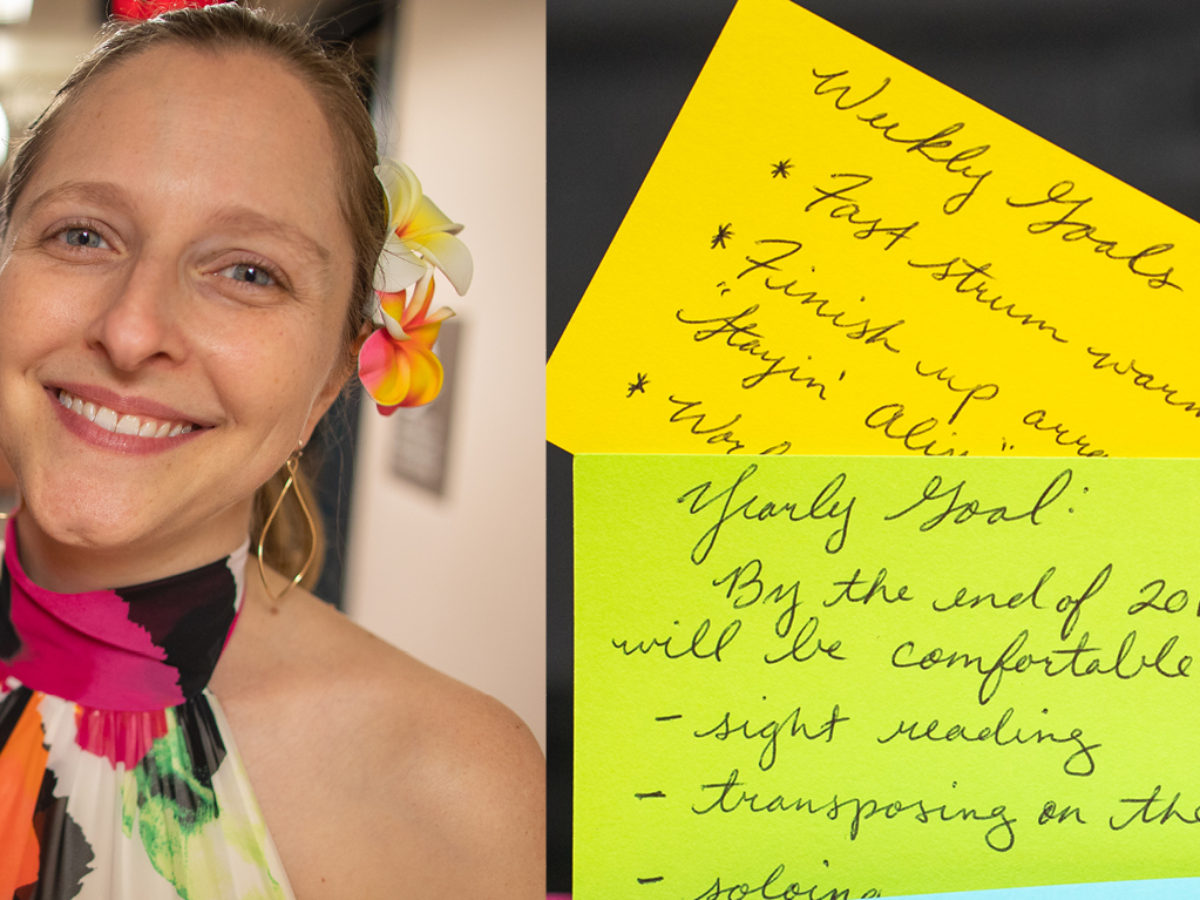 Weekly Goals
* Fast strum warm
* Finish up arra
"Stayin' Alive"
* Wor
Yearly Goal:
By the end of 201
will be comfortable
- sight reading
- transposing on the
- soloing